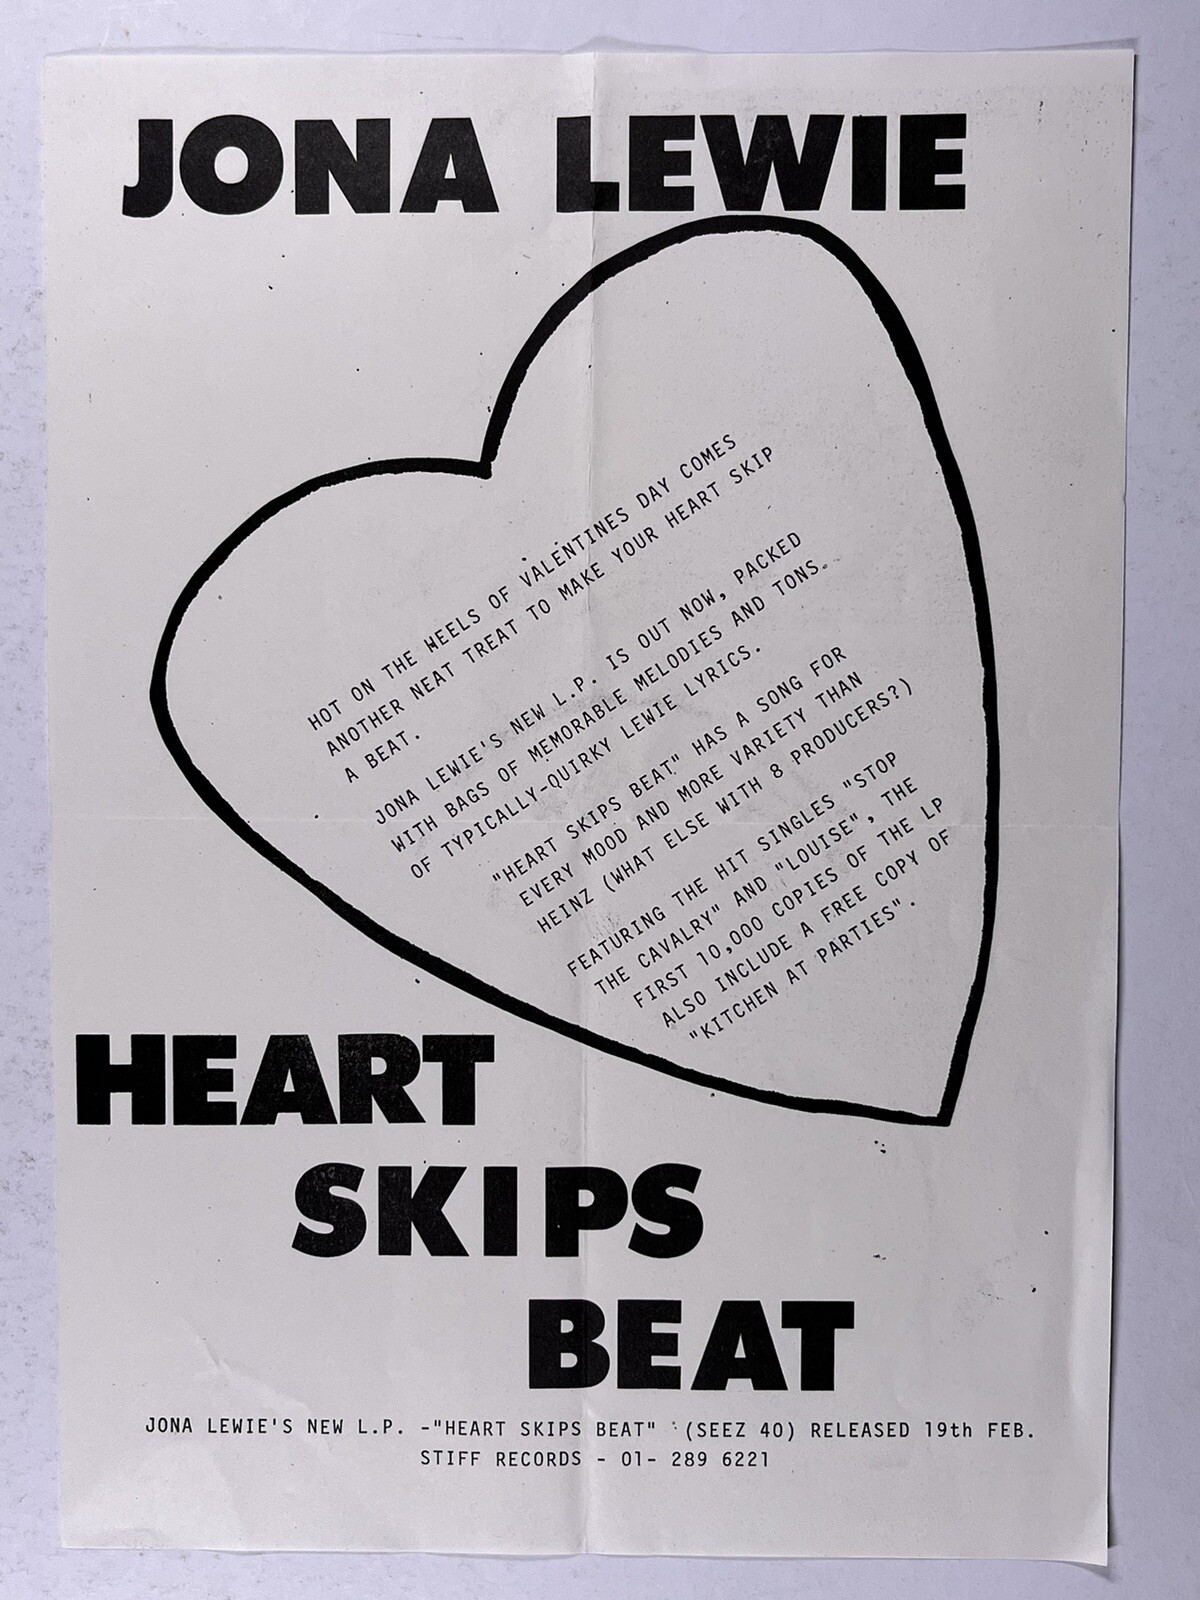 JONA LEWIE
HOT ON THE HEELS OF VALENTINES DAY COMES
ANOTHER NEAT TREAT TO MAKE YOUR HEART SKIP
A BEAT.
JONA LEWIE'S NEW L.P. IS OUT NOW, PACKED
WITH BAGS OF MEMORABLE MELODIES AND TONS
OF TYPICALLY-QUIRKY LEWIE LYRICS.
"HEART SKIPS BEAT" HAS A SONG FOR
EVERY MOOD AND MORE VARIETY THAN
HEINZ (WHAT ELSE WITH 8 PRODUCERS?)
FEATURING THE HIT SINGLES "STOP
THE CAVALRY" AND "LOUISE", THE
FIRST 10,000 COPIES OF THE LP
ALSO INCLUDE A FREE COPY OF
"KITCHEN AT PARTIES".
HEART
SKIPS
BEAT
JONA LEWIE'S NEW L.P. -"HEART SKIPS BEAT" (SEEZ 40) RELEASED 19th FEB.
STIFF RECORDS - 01- 289 6221